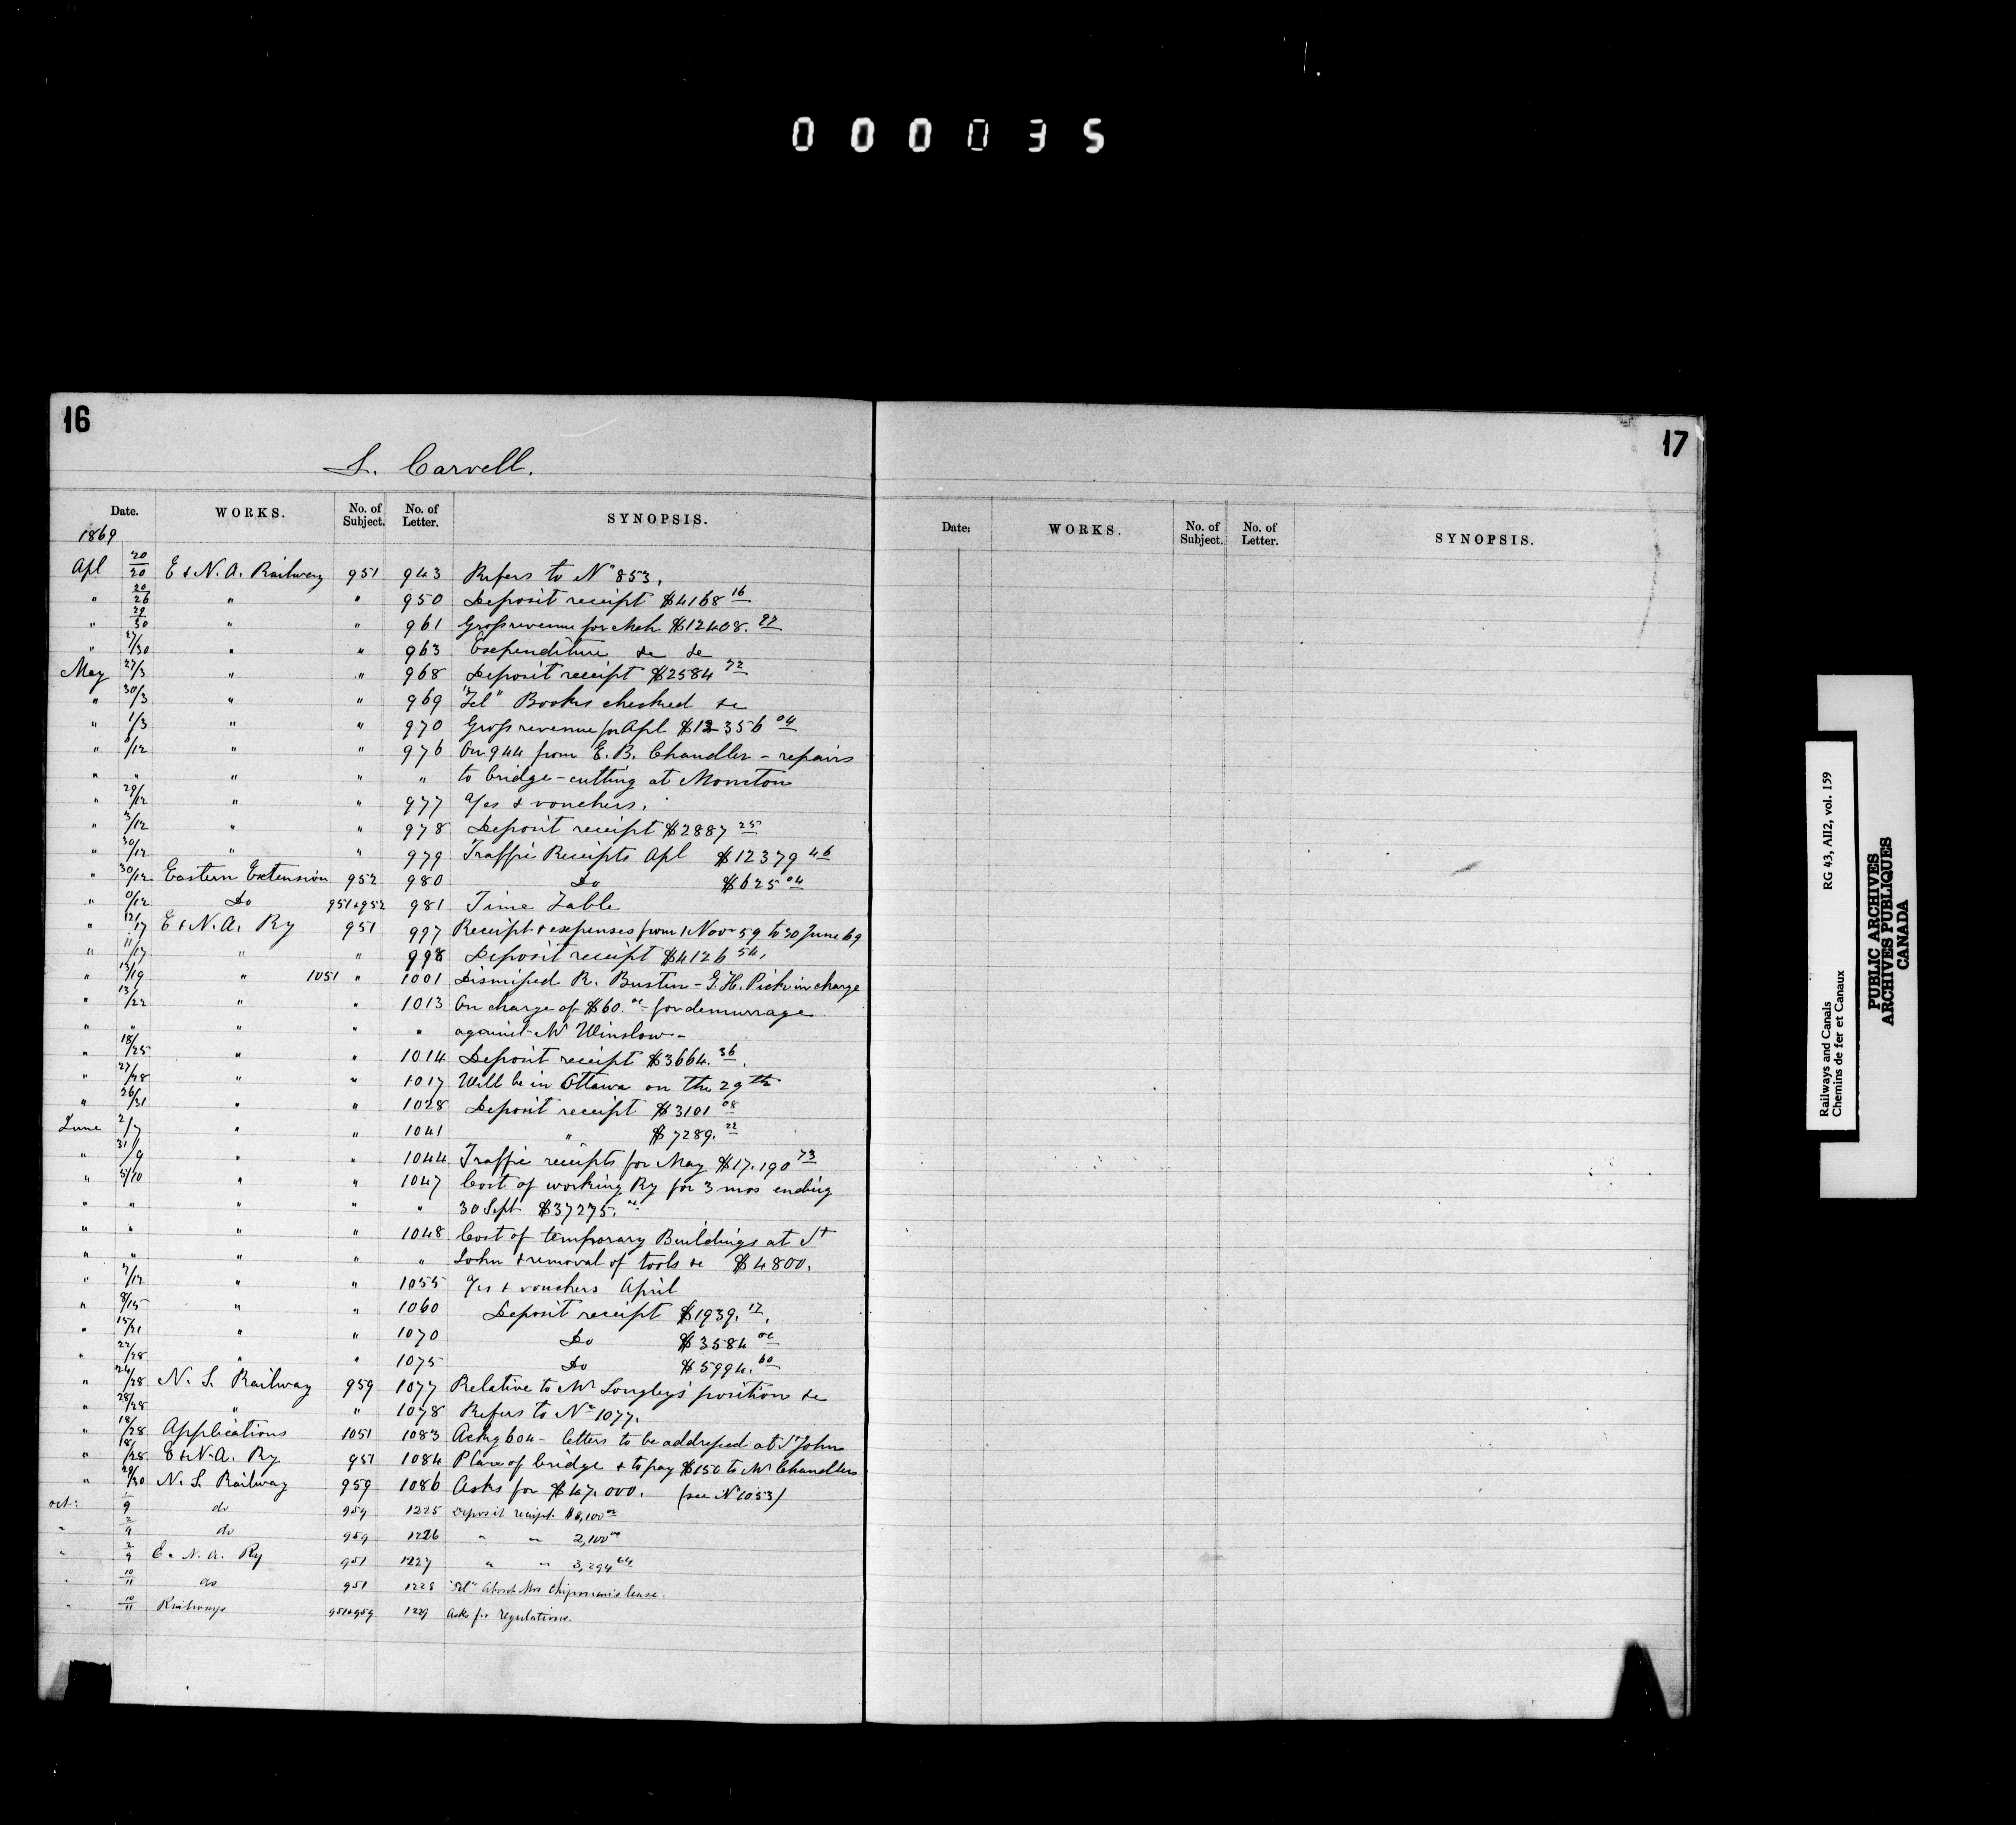 000035
16
L. Carvell.
Date. WORKS. No. of Subject. No. of Letter. SYNOPSIS.
1869
Apl 20/20 E & N. A. Railway 951 943 Refers to No 853.
" 20/26 " " 950 Deposit receipt $4168 16
" 29/30 " " 961 Gross revenue for Mch $12408.
" 27/30 " " 963 Expenditure &c &c
May 27/3 " " 968 Deposit receipt $2584 72
" 30/3 " " 969 "Tel" Books checked &c
" 1/3 " " 970 Gross revenue for Apl $12356 04
" /12 " " 976 On 944 from E. B. Chandler - repairs
" " " " " to bridge - cutting at Moncton
" 29/12 " " 977 a/cs & vouchers.
" 3/12 " " 978 Deposit receipt $2887 25
" 30/12 " " 979 Traffic Receipts Apl $12379 46
" 30/12 Eastern Extension 952 980 Do $625 04
" /12 Do 951&952 981 Time Table
" 12/17 E & N. A. Ry 951 997 Receipt & expenses from 1 Nov 59 to 30 June 69
" 11/17 " " 998 Deposit receipt $4126 54.
" /19 " 1051 " 1001 Dismissed R. Bustin - G. H. Pick in charge
" 13/22 " " 1013 On charge of $60. 00 for demurrage
" " " " " against Mr Winslow -
" 18/25 " " 1014 Deposit receipt $3664. 36.
" 27/28 " " 1017 Will be in Ottawa on the 29th
" 26/31 " " 1028 Deposit receipt $3101 08
June 2/7 " " 1041 " $7289. 22
" 31/9 " " 1044 Traffic receipts for May $17.190 73
" 5/10 " " 1047 Cost of working Ry for 3 mos ending
" " " " " 30 Sept $37275. 00
" " " " 1048 Cost of temporary Buildings at St
" " " " " John & removal of tools &c $4800.
" 7/12 " " 1055 a/cs & vouchers April
" 8/15 " " 1060 Deposit receipt $1939. 17.
" 15/21 " " 1070 Do $3584 00
" 22/28 " " 1075 Do $5994. 60
" 24/28 N. S. Railway 959 1077 Relative to Mr Longley's position &c
" 28/28 " " 1078 Refers to No 1077.
" 18/28 Applications 1051 1083 Ackg 604 - letters to be addressed at St John
" 18/28 E & N. A. Ry 951 1084 Plan of bridge & to pay $150 to Mr Chandler
" 29/30 N. S. Railway 959 1086 Asks for $47.000. (see No 1053)
Oct: /9 do 959 1225 Deposit receipt $8,100 00
" 2/9 do 959 1226 " " 2,100 00
" 2/9 E. N. A. Ry 951 1227 " " 3,294 64
" 10/11 do 951 1228 "Tel" About Mrs Chipman's lease.
" 10/11 Railways 951&959 1229 Asks for regulations.
17
Date: WORKS. No. of Subject. No. of Letter. SYNOPSIS.
Railways and Canals RG 43, AII2, vol. 159
Chemins de fer et Canaux
PUBLIC ARCHIVES
ARCHIVES PUBLIQUES
CANADA